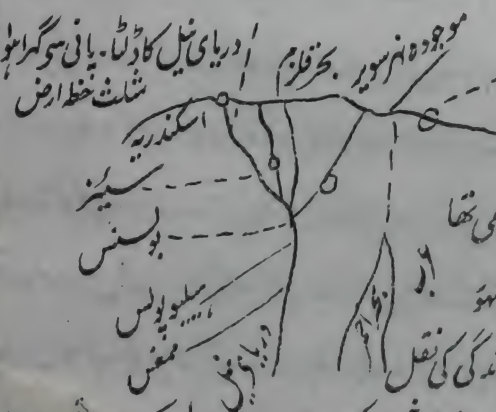 موجودہ نہر سویز
بحر قلزم
دریای نیل کا ڈلٹا۔ پانی سی گھرا ہوا
مثلث خطہ ارض
اسکندریہ
سیئز
بوسنس
ہیلیوپولس
ممفس
دریای نیل
بحر احمر
ی تھا
ہو
ندگی کی نقل